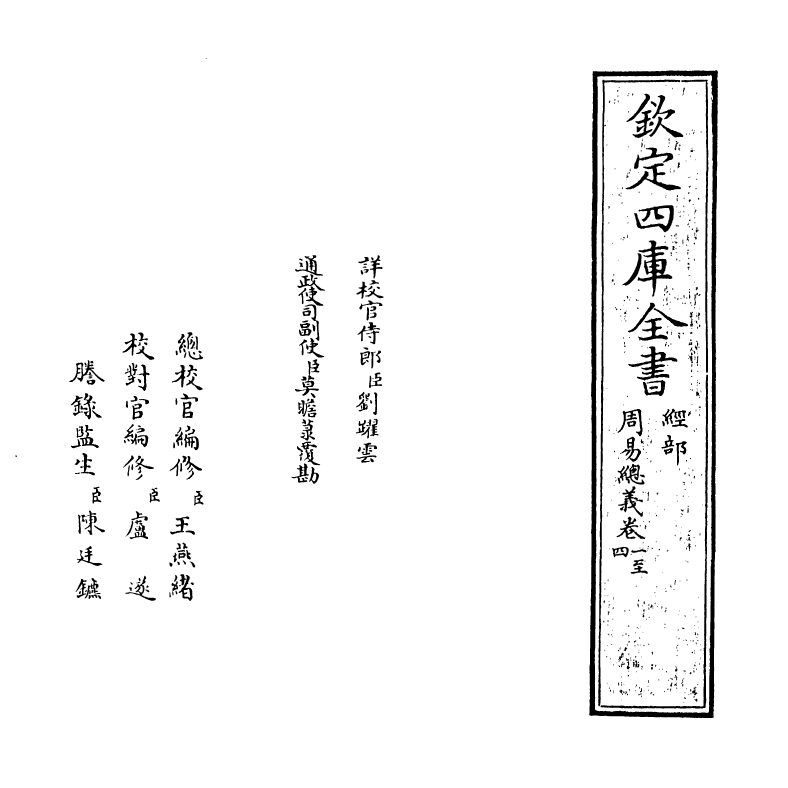 欽定四庫全書
經部
周易總義卷一至四
詳校官侍郎臣劉躍雲
通政使司副使臣莫瞻菉覆勘
總校官編修臣王燕緒
校對官編修臣盧遂
謄錄監生臣陳廷鑣